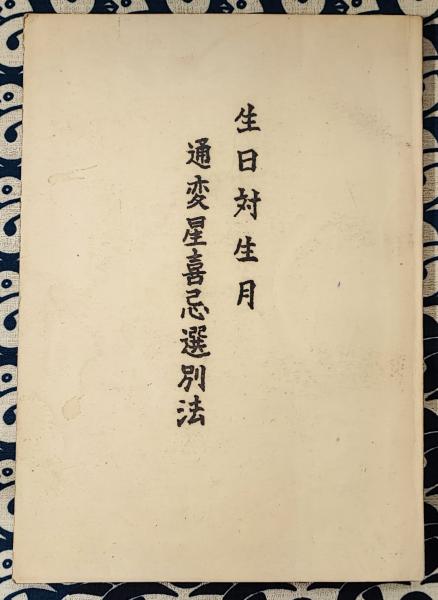 生日対生月
通変星喜忌選別法